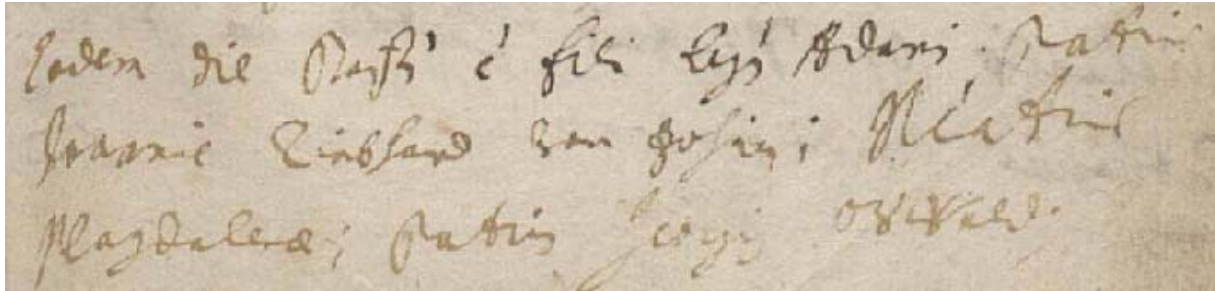 Eodem die Baptz' ẽ fili legit' Adami. Patris
Joannis Liebhard von ; Matris
Magdalenæ; Patrin Georgij Oswald.